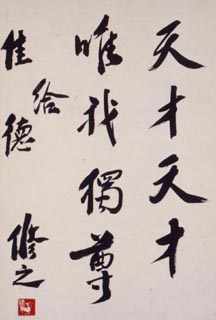 天才天才
唯我獨尊
給佳德
修之